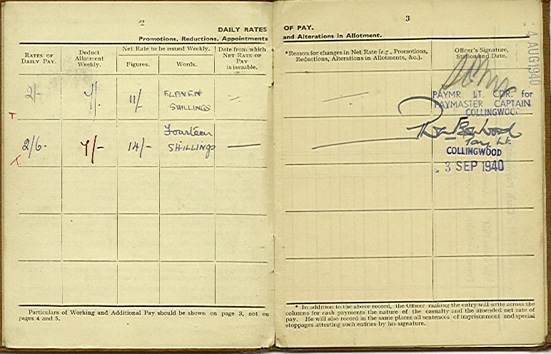 2
DAILY RATES
Promotions, Reductions, Appointments
RATES OF DAILY PAY.
Deduct Allotment Weekly.
Net Rate to be issued Weekly.
Figures.
Words.
Date from which NET RATE OF PAY is issuable.
2/-
7/-
11/-
ELEVEN
SHILLINGS
2/6-
7/-
14/-
Fourteen
SHILLINGS
Particulars of Working and Additional Pay should be shown on page 3, not on
pages 4 and 5.
3
OF PAY.
and Alterations in Allotment.
*Reason for changes in Net Rate (e.g., Promotions,
Reductions, Alterations in Allotments, &c.).
Officer's Signature,
Station and Date.
4 AUG 1940
PAYMR LT. CDR. for
PAYMASTER CAPTAIN
COLLINGWOOD
Pay Lt.
COLLINGWOOD
3 SEP 1940
* In addition to the above record, the Officer making the entry will write across the
columns for cash payments the nature of the casualty and the amended net rate of
pay. He will also record in the same places all sentences of imprisonment and special
stoppages attesting such entries by his signature.